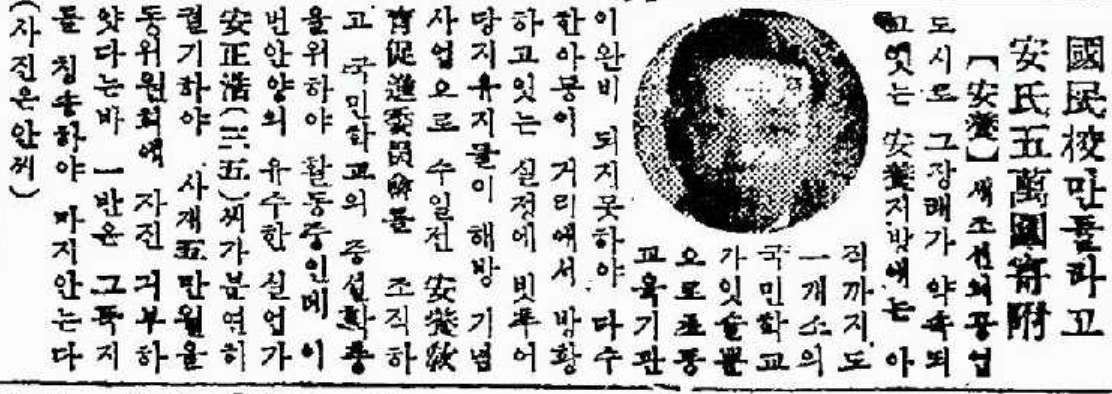 國民校만들라고
安氏五萬圓寄附
【安養】새조선의공업
도시로 그장래가 약속되
고엿는 安養지방에는 아
직까지도
一개소의
국민학교
가잇슬뿐
으로초등
교육기관
이완비 되지못하야 다수
한아동이 거리에서 방황
하고잇는 실정에 빗추어
당지유지들이 해방 기념
사업으로 수일전 安養敎
育促進委員會를 조직하
고 국민학교의 증설확충
을위하야 활동중인데 이
번안양의 유수한 실업가
安正浩(三五)씨가분연히
궐기하야 사재五만원을
동위원회에 자진 긔부하
얏다는바 一반은 그독지
를 칭송하야 마지안는다
(사진은안씨)